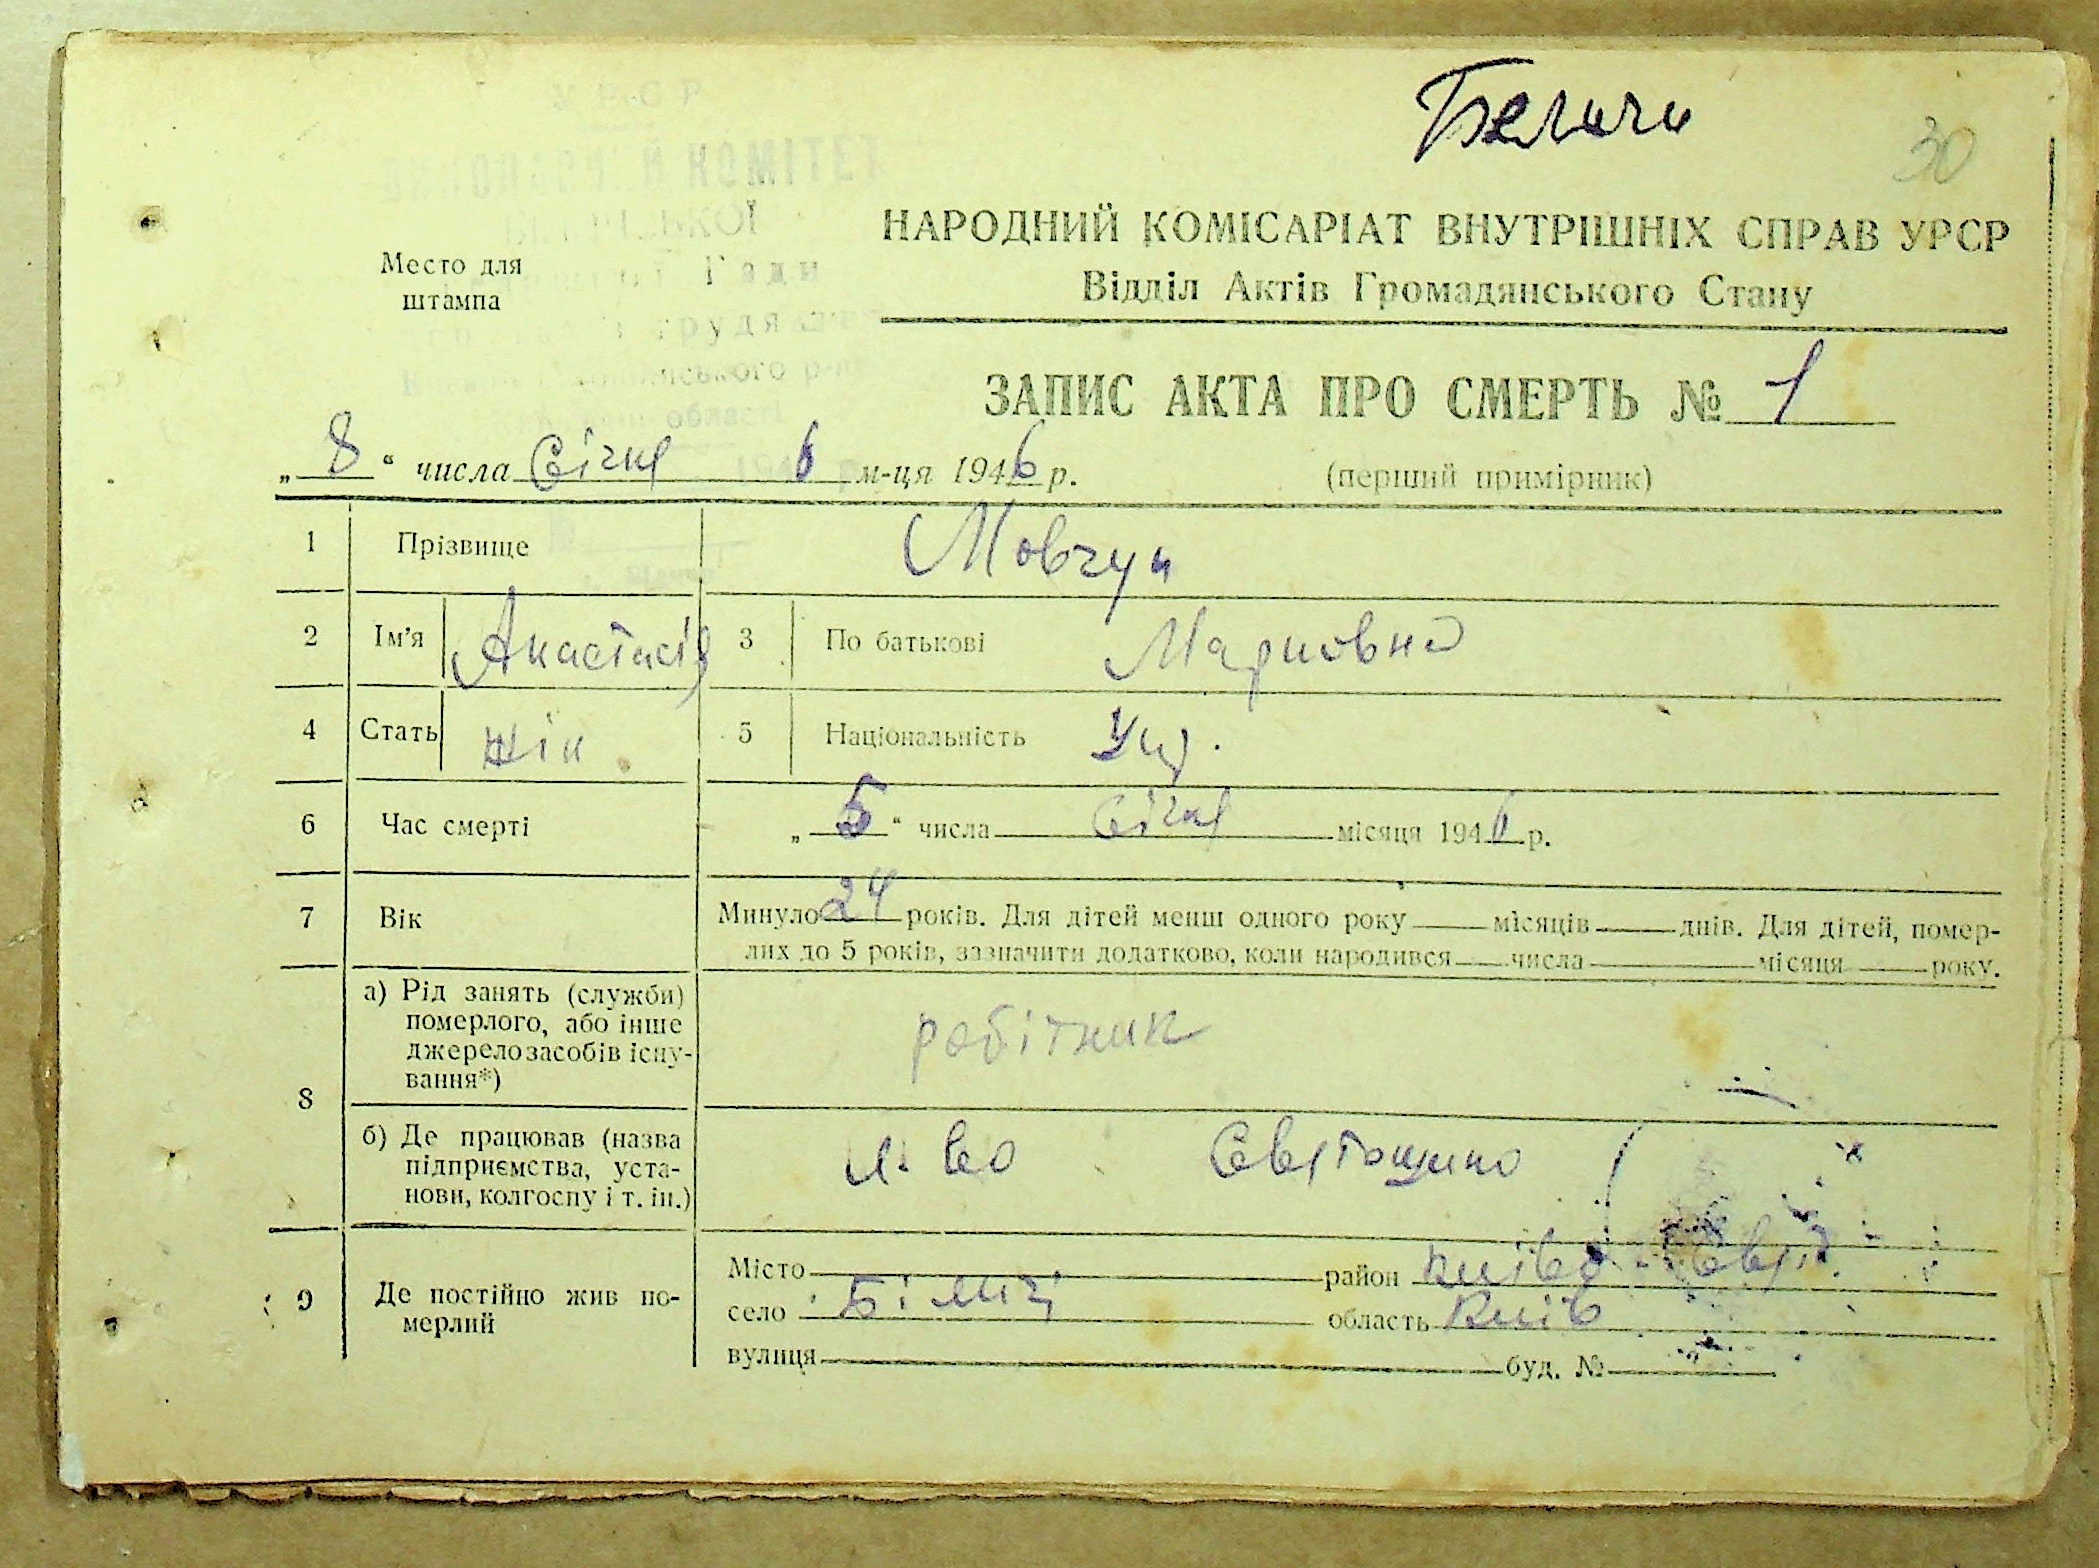 Беличи
30
У Р С Р
КОМІТЕТ
Ради
Место для
штампа
НАРОДНИЙ КОМІСАРІАТ ВНУТРІШНІХ СПРАВ УРСР
Відділ Актів Громадянського Стану
ЗАПИС АКТА ПРО СМЕРТЬ № 1
„ 8 “ числа Січня м-ця 1946 р. (перший примірник)
1 Прізвище Мовчун
2 Ім'я Анастасія 3 По батькові Марковна
4 Стать жін 5 Національність Укр.
6 Час смерті „ 5 “ числа Січня місяця 1946 р.
7 Вік Минуло 24 років. Для дітей менш одного року місяців днів. Для дітей, помер-
лих до 5 років, зазначити додатково, коли народився числа місяця року.
8 а) Рід занять (служби)
померлого, або інше
джерело засобів існу-
вання*)
робітник
б) Де працював (назва
підприємства, уста-
нови, колгоспу і т. ін.)
Святошино
9 Де постійно жив по-
мерлий
Місто район Києво-Свят.
село Біличі область Київ
вулиця буд. №